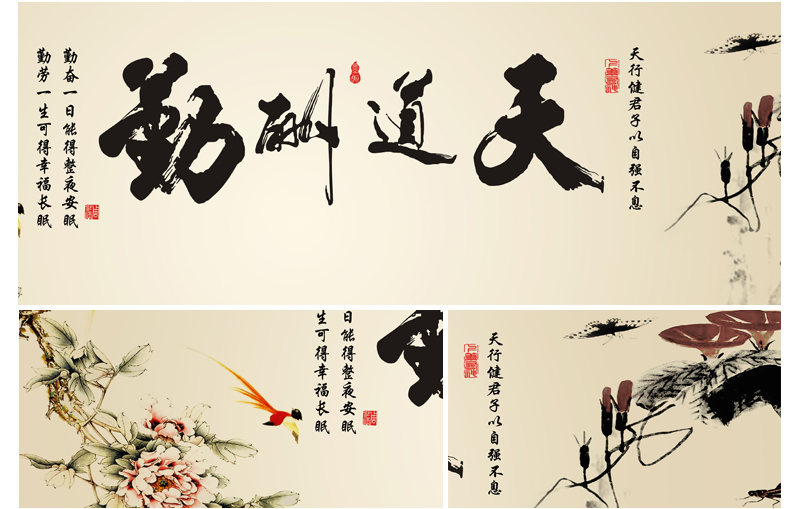 天行健君子以自强不息
天道酬勤
勤奋一日能得整夜安眠
勤劳一生可得幸福长眠
日能得整夜安眠
生可得幸福长眠
天行健君子以自强不息